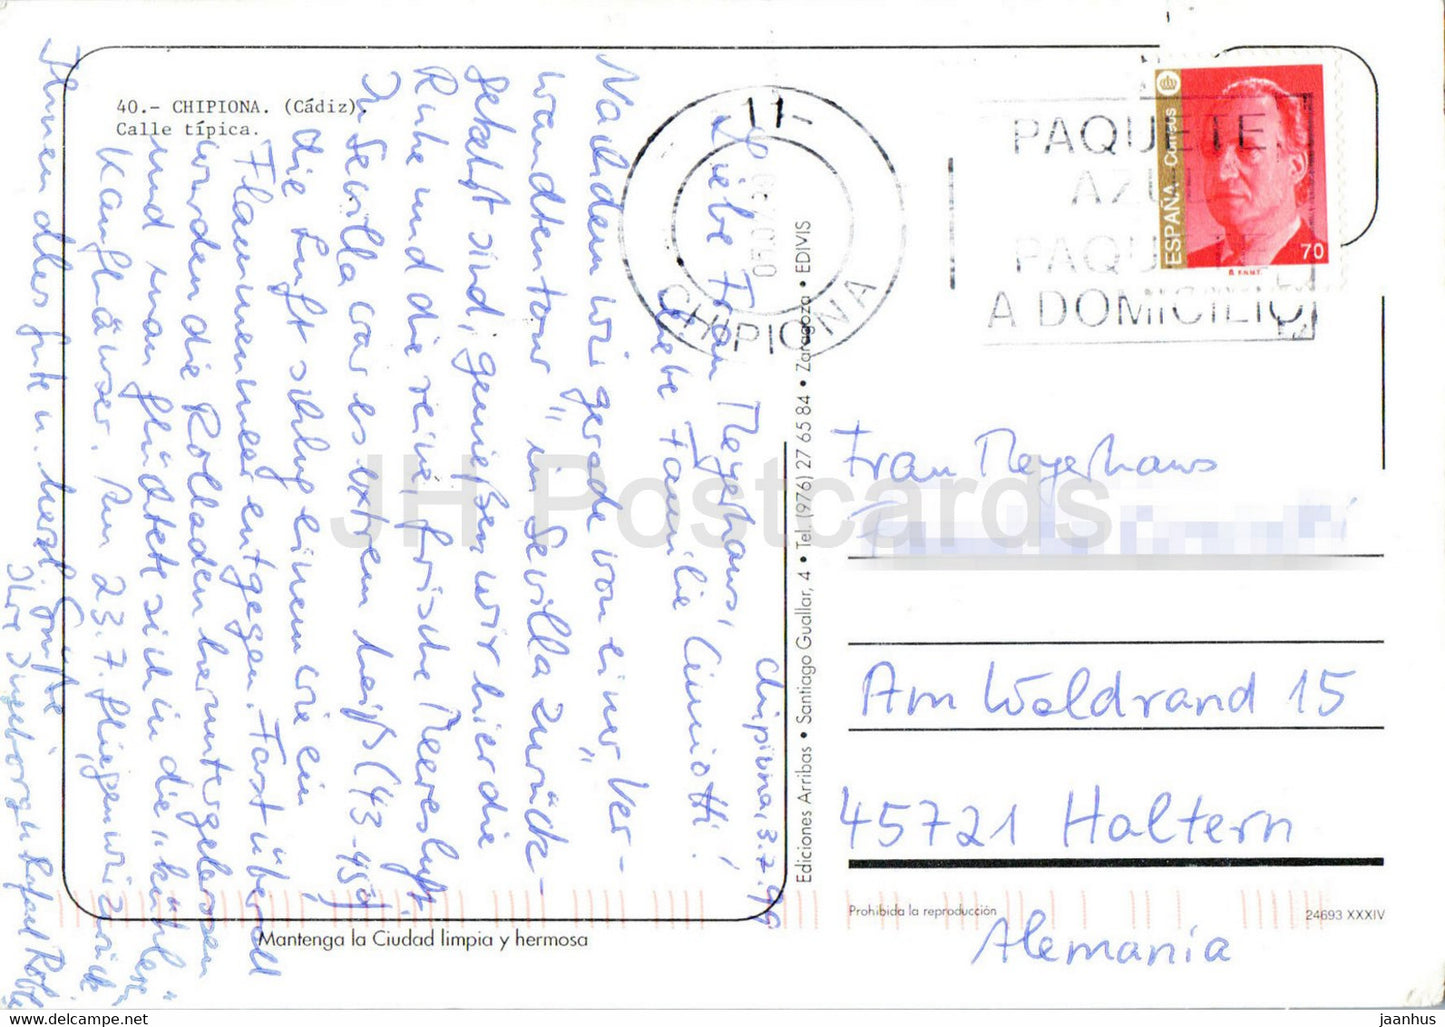 40.- CHIPIONA. (Cádiz).
Calle típica.
Chipiona, 3.7.99
Liebe Frau Meyerhaus,
liebe Familie Cimiotti!
Nachdem wir gerade von einer „Ver-
wandtentour" in Sevilla zurückge-
kehrt sind, genießen wir hier die
Ruhe und die reine, frische Meeresluft.
In Sevilla war es extrem heiß (43-45°)
die Luft schlug einem wie ein
Flammenmeer entgegen. Fast überall
wurden die Rolladen heruntergelassen
und man flüchtete sich in die „kühlen"
Kaufhäuser. Am 23.7. fliegen wir zurück
Ihnen alles Gute u. herzl. Grüße
Ihre Ingeborg u. Rafael
-11-
CHIPIONA
PAQUETE
AZUL
PAQUETE
A DOMICILIO
ESPAÑA Correos
70
F.N.M.T.
Ediciones Arribas • Santiago Guallar, 4 • Tel. (976) 27 65 84 • Zaragoza • EDIVIS
Frau Meyerhaus
Am Waldrand 15
45721 Haltern
Alemania
Prohibida la reproducción
24693 XXXIV
Mantenga la Ciudad limpia y hermosa
JH Postcards
www.delcampe.net
jaanhus